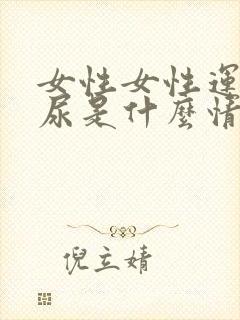 女性女性運
尿是什麼情
倪立婧